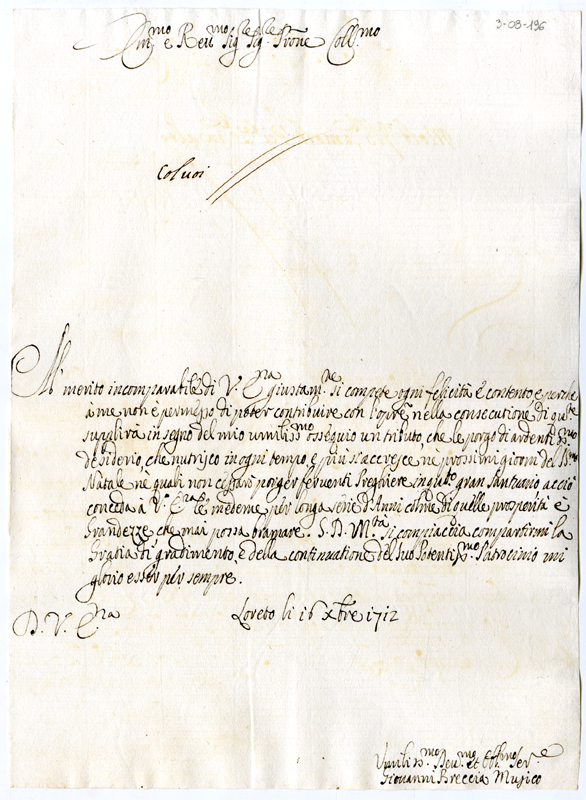 3-08-196
Em.mo e Reu.mo Sig.re Sig.re Prone Coll.mo
Coluoi
Al merito incomparabile di V. E.na giustam.te si compete ogni felicità e contento, e perche
a me non è permesso di poter contribuire con l'opre nella consecutione di queste
supplirà in segno del mio umiliss.mo ossequio un tributo, che le porgo di ardentiss.mo
desiderio, che nutrisco in ogni tempo, e più s'accresce nè prossimi giorni del S.mo
Natale nè quali non cessarò porger feruenti Preghiere in q.to gran Santuario acciò
conceda a V. E.na le medeme per longa serie d'Anni colme di quelle prosperità è
Grandezze, che mai possa bramare. S. D. M.tà si compiaccia compartirmi la
Gratia di gradimento, e della continuatione del Suo Potentiss.mo Patrocinio mi
glorio esser per sempre.
D. V. E.na
Loreto li 16 Xbre 1712
Vmiliss.mo Deu.mo et Obl.mo Ser.e
Giouanni Breccia Musico